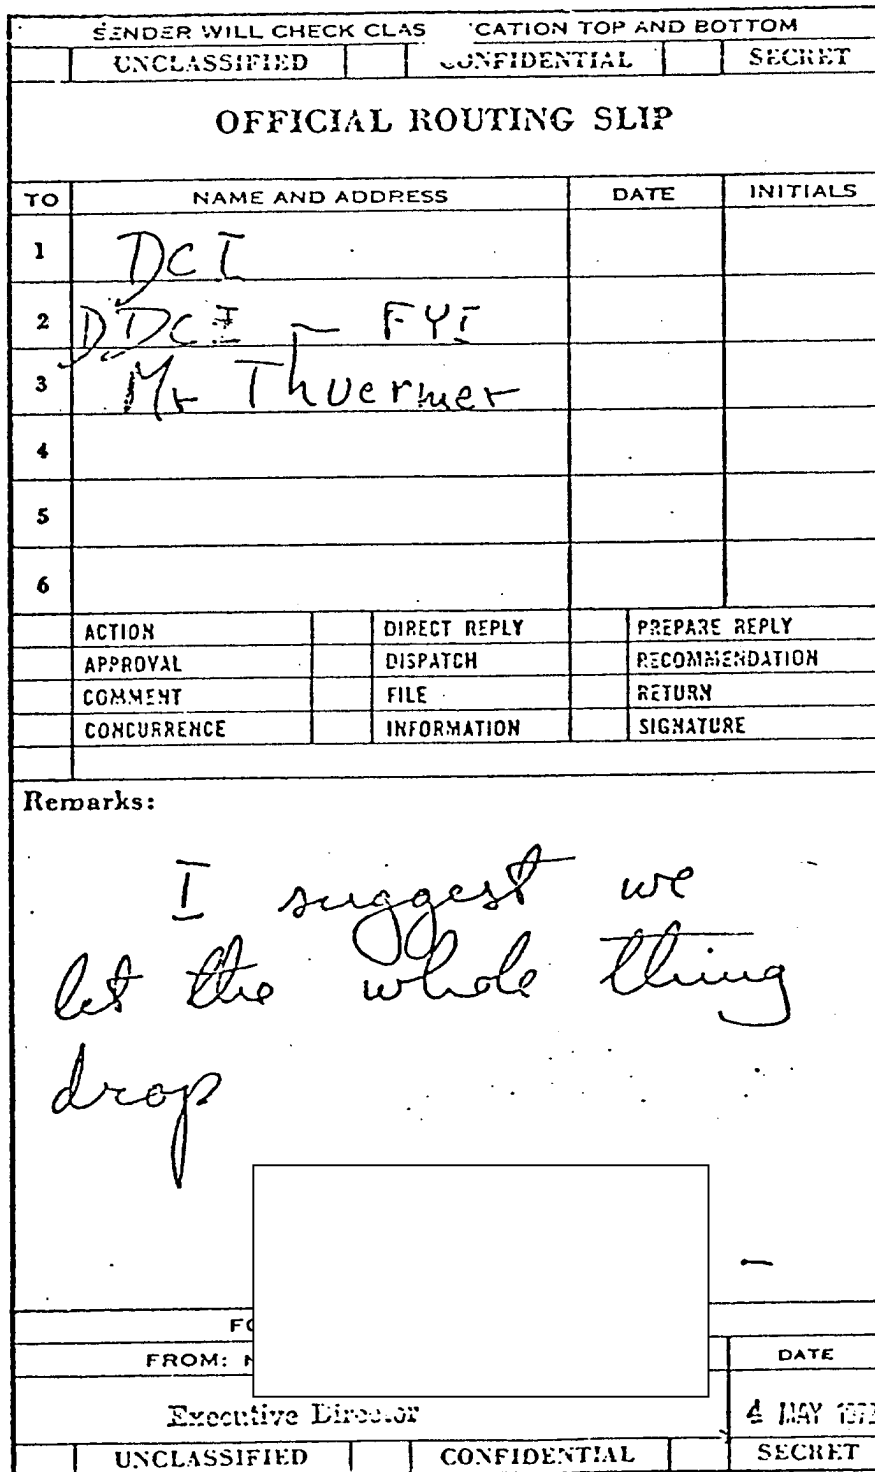 SENDER WILL CHECK CLAS CATION TOP AND BOTTOM
UNCLASSIFIED CONFIDENTIAL SECRET
OFFICIAL ROUTING SLIP
TO NAME AND ADDRESS DATE INITIALS
1 DCI
2 DDCI - FYI
3 Mr Thuermer
4
5
6
ACTION DIRECT REPLY PREPARE REPLY
APPROVAL DISPATCH RECOMMENDATION
COMMENT FILE RETURN
CONCURRENCE INFORMATION SIGNATURE
Remarks:
I suggest we
let the whole thing
drop
FROM: DATE
Executive Director 4 MAY
UNCLASSIFIED CONFIDENTIAL SECRET